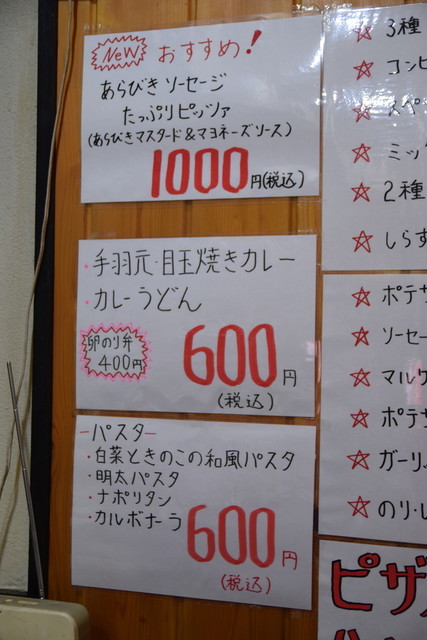 NeW おすすめ!
あらびきソーセージ
たっぷりピッツァ
(あらびきマスタード&マヨネーズソース)
1000円(税込)
・手羽元・目玉焼きカレー
・カレーうどん
卵のり弁
400円
600円
(税込)
ーパスター
・白菜ときのこの和風パスタ
・明太パスタ
・ナポリタン
・カルボナーラ
600円
(税込)
☆ 3種
☆ コンビ
☆ スペ
☆ ミッ
☆ 2種
☆ しらす
☆ ポテサ
☆ ソーセー
☆ マルゲ
☆ ポテサ
☆ ガーリ
☆ のり・し
ピザ